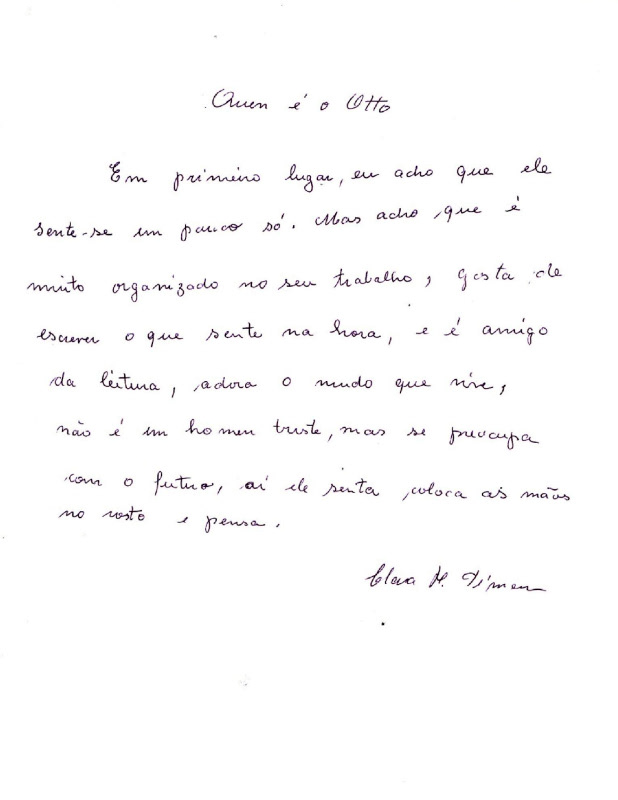 Quen é o Otto
Em primeiro lugar, eu acho que ele
sente-se um pouco só. Mas acho que é
muito organizado no seu trabalho, gosta de
escrever o que sente na hora, e é amigo
da leitura, adora o mudo que vive,
não é um homen triste, mas se preocupa
com o futuro, aí ele senta coloca as mãos
no rosto e pensa.
Clara M.